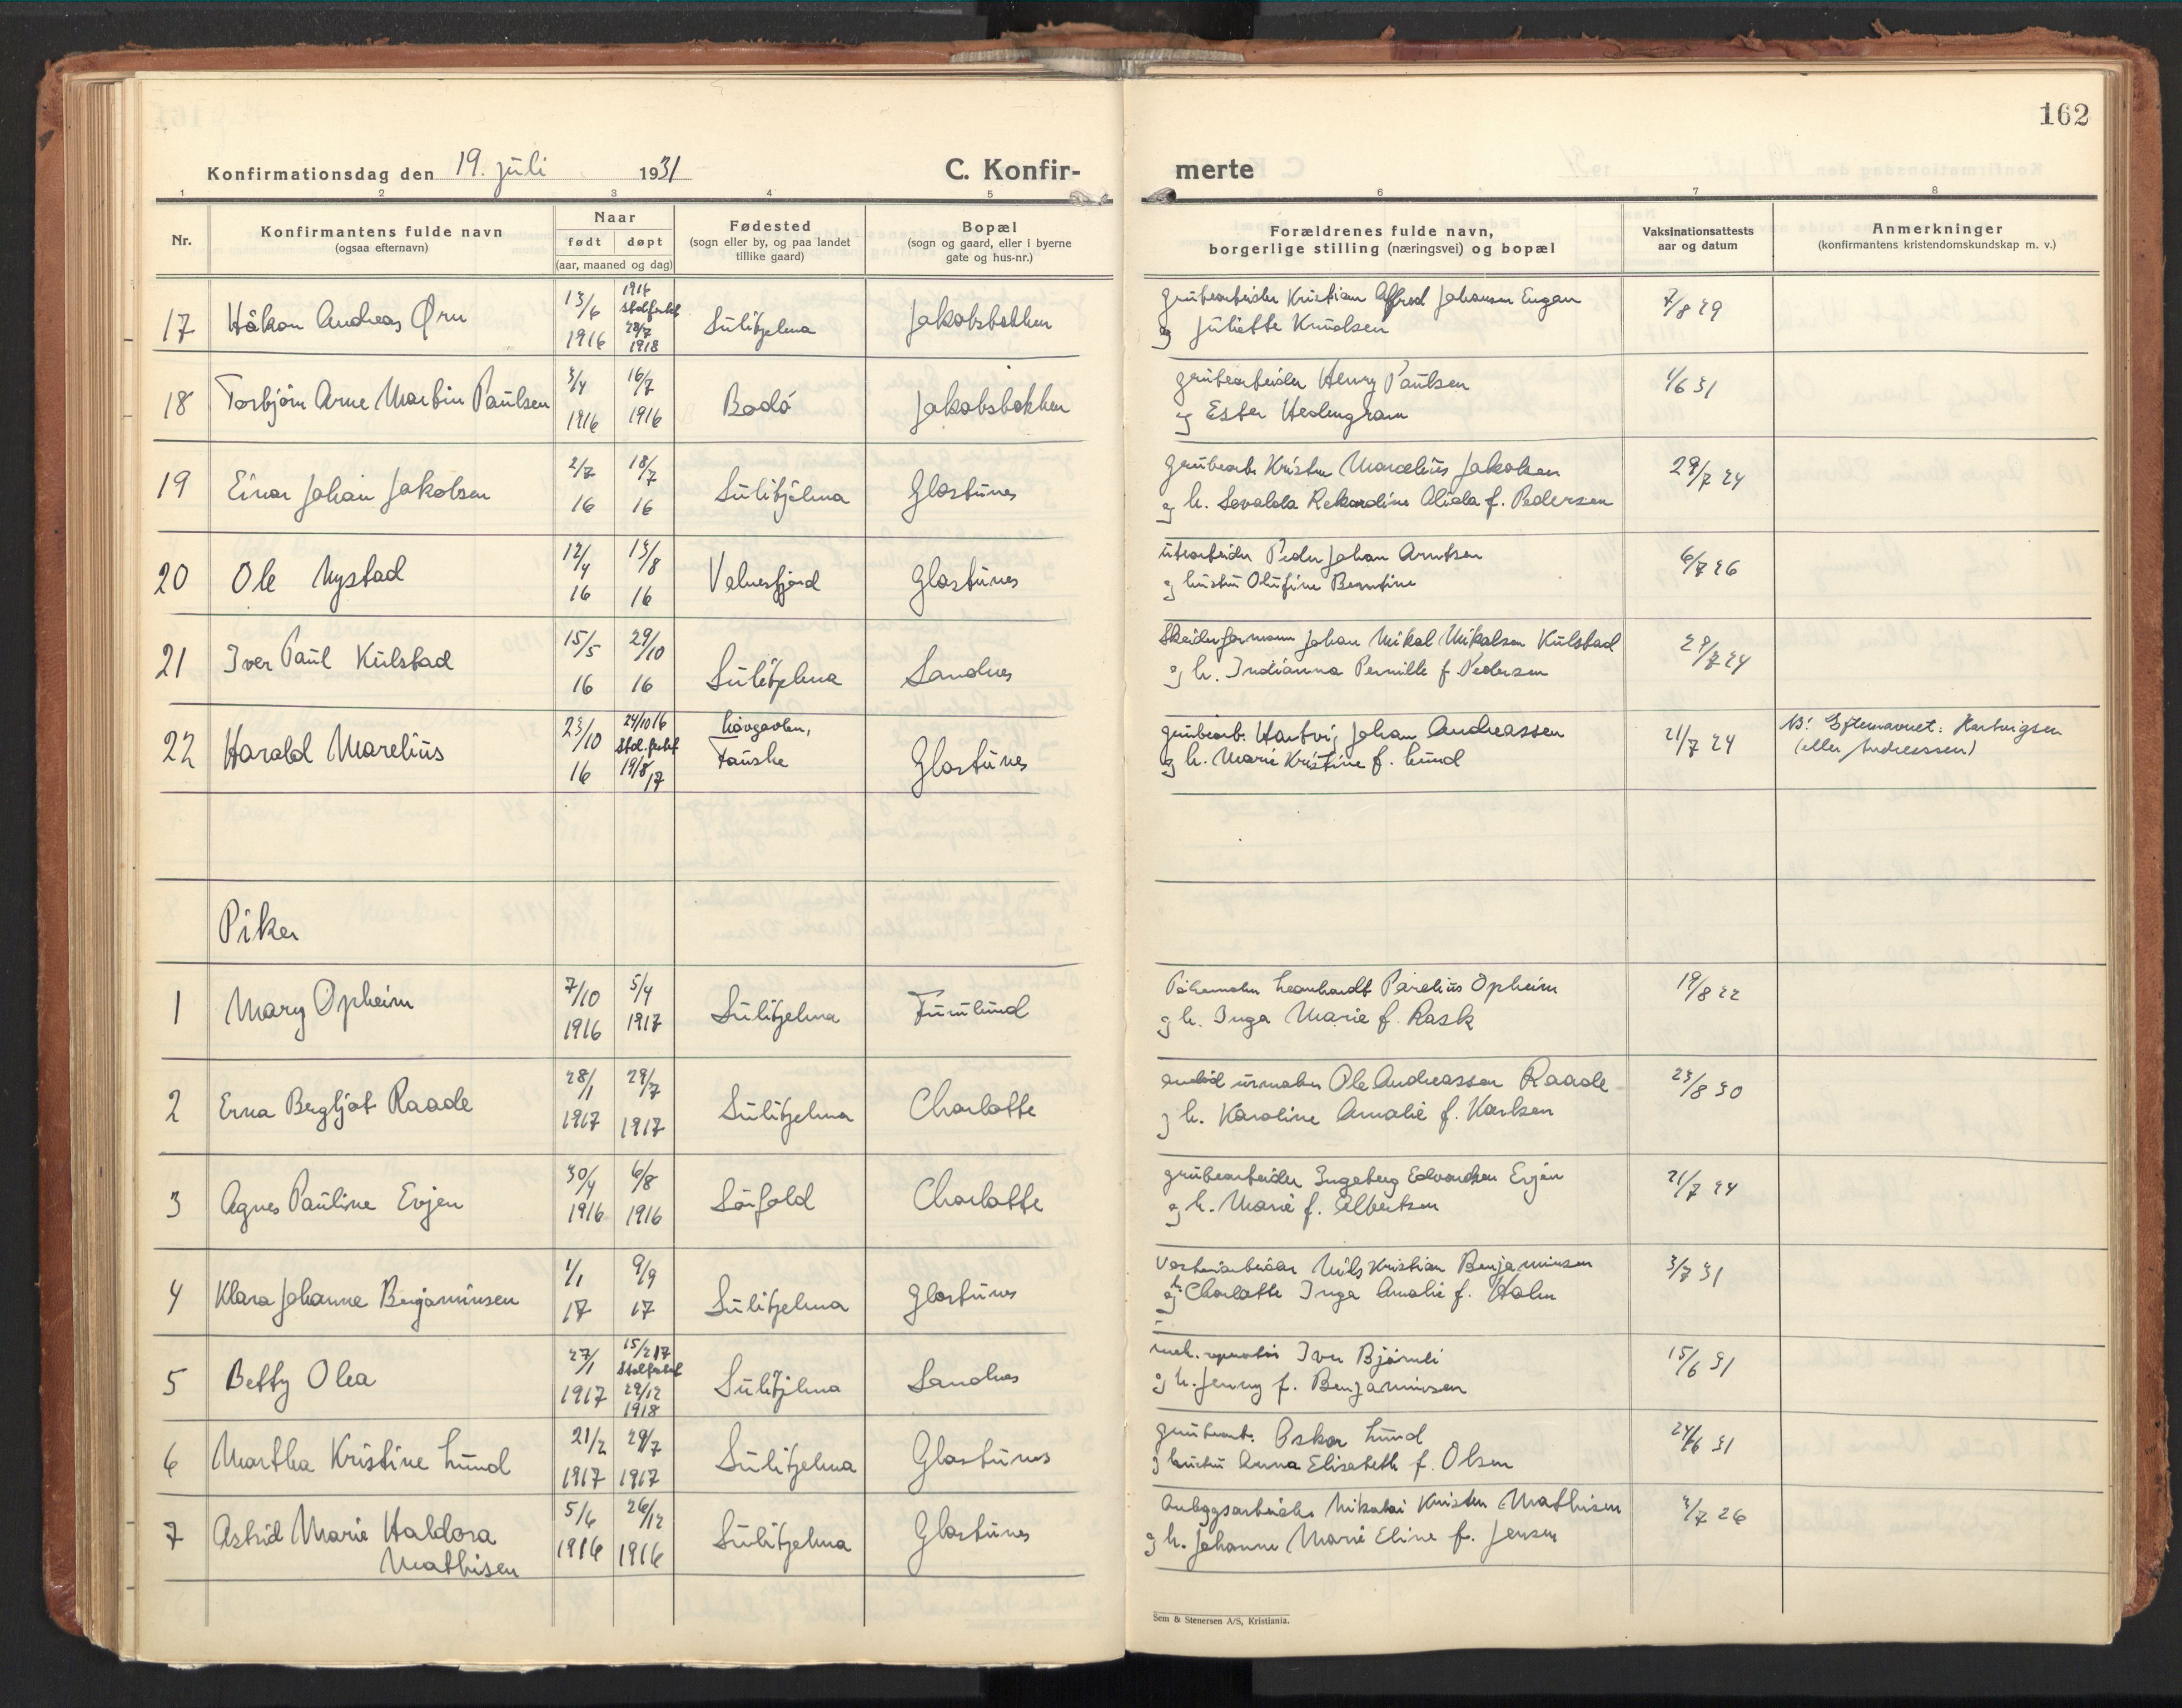 162
Konfirmationsdag den 19. juli 1931
C. Konfirmerte
1 2 3 4 5 6 7 8
Nr.
Konfirmantens fulde navn
(ogsaa efternavn)
Naar
født døpt
(aar, maaned og dag)
Fødested
(sogn eller by, og paa landet
tillike gaard)
Bopæl
(sogn og gaard, eller i byerne
gate og hus-nr.)
Forældrenes fulde navn,
borgerlige stilling (næringsvei) og bopæl
Vaksinationsattests
aar og datum
Anmerkninger
(konfirmantens kristendomskundskap m. v.)
17 Håkon Andreas Ørn 13/6 1916 1916 stadfestet 28/7 1918 Sulitjelma Jakobsbakken
grubearbeider Kristian Alfred Johansen Engan
og Juliette Knudsen 7/8 29
18 Torbjörn Arne Martin Paulsen 3/4 1916 16/7 1916 Bodö Jakobsbakken
grubearbeider Henry Paulsen
og Ester Hedengram 1/6 31
19 Einar Johan Jakobsen 2/7 16 18/7 16 Sulitjelma Glastunes
grubearb. Kristen Marselius Jakobsen
og h. Sevalda Rekardine Alida f. Pedersen 29/7 24
20 Ole Nystad 12/4 16 13/8 16 Valnesfjord Glastunes
utearbeider Peder Johan Arntsen
og hustru Olufine Berntine 6/7 26
21 Iver Paul Kulstad 15/5 16 29/10 16 Sulitjelma Sandnes
Skeiderformann Johan Mikal Mikalsen Kulstad
og h. Indianna Pernille f. Pedersen 29/7 24
22 Harald Marelius 23/10 16 24/10 16 Std.festet 19/8 17 Fauske Glastunes
grubearb. Hartvig Johan Andreassen
og h. Marie Kristine f. Lund 21/7 24
NB! Efternavnet: Hartvigsen
(eller Andreassen)
Piker
1 Mary Opheim 7/10 1916 5/4 1917 Sulitjelma Furulund
Leonhardt Parelius Opheim
og h. Inga Marie f. Rask 19/8 22
2 Erna Bergljot Raade 28/1 1917 29/7 1917 Sulitjelma Charlotte
urmaker Ole Andreassen Raade
og h. Karoline Amalie f. Karlsen 23/8 30
3 Agnes Pauline Evjen 30/4 1916 6/8 1916 Sörfold Charlotte
grubearbeider Ingeberg Edvardsen Evjen
og h. Marie f. Albertsen 21/7 24
4 Klara Johanne Benjaminsen 1/1 17 9/9 17 Sulitjelma Glastunes
Nils Kristian Benjaminsen
og h. Charlotte Inga Amalie f. Holm 3/7 31
5 Betty Olea 27/1 1917 15/2 17 Stadfestet 29/12 1918 Sulitjelma Sandnes
mek. reparatör Iver Björnli
og h. Jenny f. Benjaminsen 15/6 31
6 Martha Kristine Lund 21/2 1917 29/7 1917 Sulitjelma Glastunes
grubearb. Oskar Lund
og hustru Anna Elisabeth f. Olsen 24/6 31
7 Astrid Marie Haldora
Mathisen 5/6 1916 26/12 1916 Sulitjelma Glastunes
Anleggsarbeider Nikolai Kristen Mathisen
og h. Johanne Marie Eline f. Jensen 3/7 26
Sem & Stenersen A/S, Kristiania.